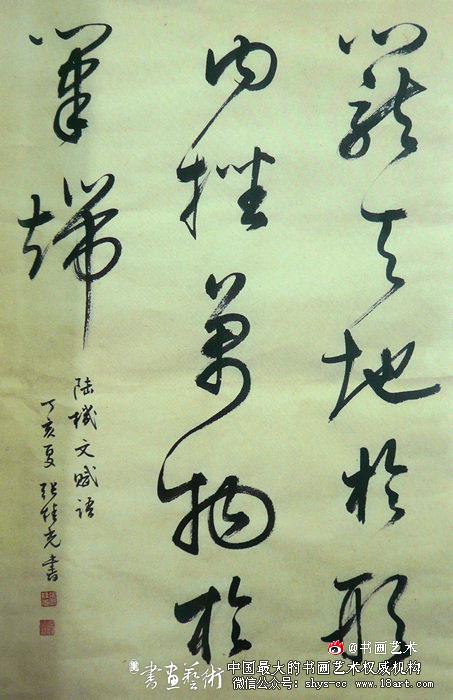 籠天地於形
内挫萬物於
筆端
陆機文賦語
丁亥夏 張 書
@书画艺术
書画藝術
中国最大的书画艺术权威机构
微信公众号: shys-cc www.18art.com